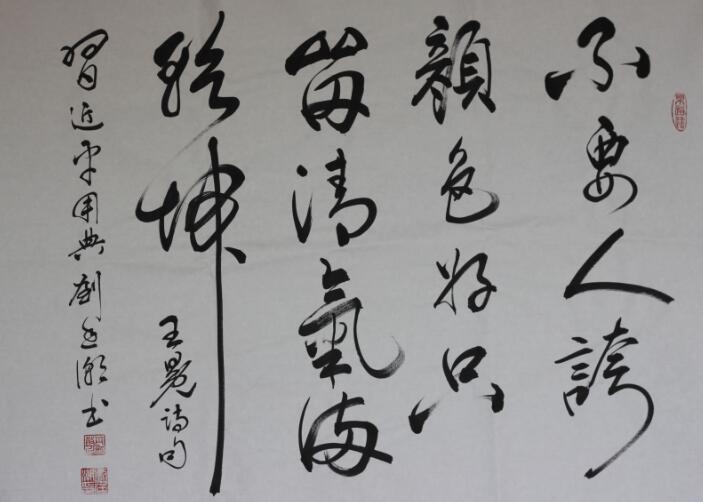 不要人誇
顏色好只
留清氣滿
乾坤
王冕詩句
習近平用典劉志潮書